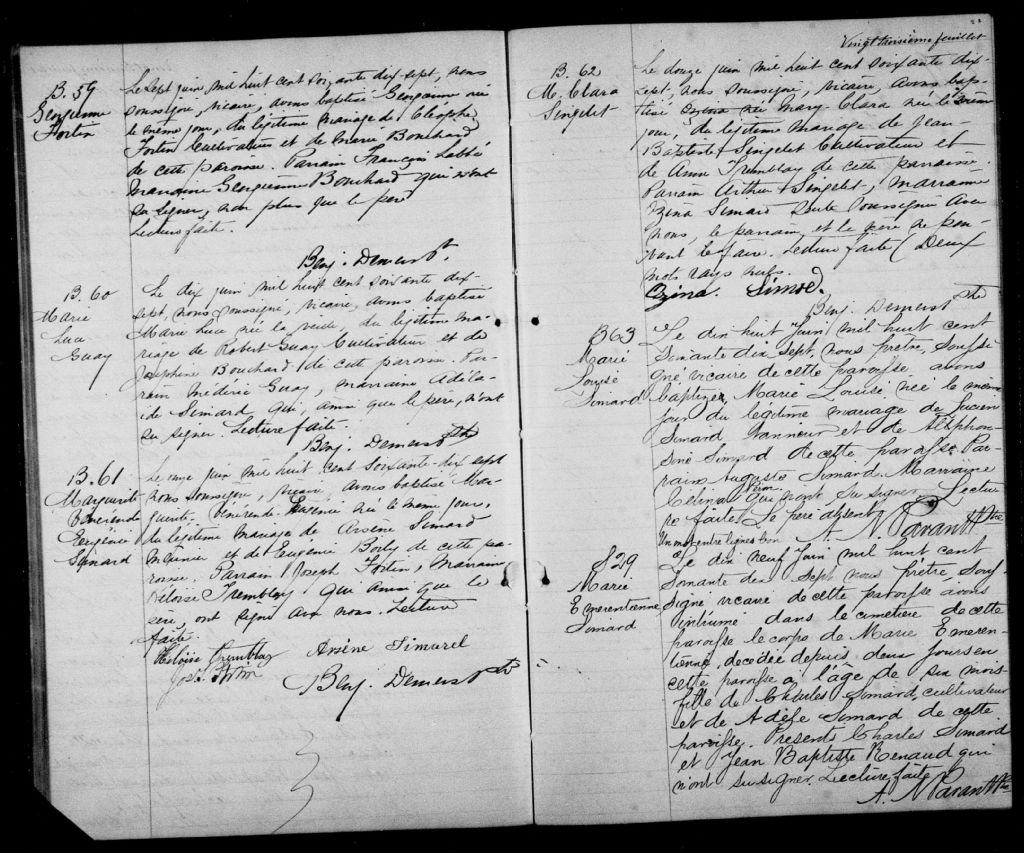 B. 59
Georgianne
Fortin
Le sept juin mil huit cent soixante dix-sept, nous
soussigné, vicaire, avons baptisé Georgianne née
le même jour, du légitime mariage de Cléophe
Fortin Cultivateur et de Marie Bouchard
de cette paroisse. Parrain François Labbé
Marraine Georgianne Bouchard qui n'ont
su signer, non plus que le père
Lecture faite.
Benj. Demers Ptre
B. 60
Marie
Luce
Guay
Le dix juin mil huit cent soixante dix-
sept, nous soussigné, vicaire, avons baptisé
Marie Luce née la veille, du légitime ma-
riage de Robert Guay Cultivateur et de
Josephine Bouchard de cette paroisse. Par-
rain Médéric Guay, marraine Adéla-
ide Simard qui, ainsi que le père, n'ont
su signer. Lecture faite.
Benj. Demers Ptre
B. 61
Marguerite
Vénérende
Eugénie
Simard
Le onze juin mil huit cent soixante-dix sept
nous soussigné, vicaire, avons baptisé Mar-
guerite Vénérende Eugénie née le même jour,
du légitime mariage de Arsène Simard
et de Eugénie Boily de cette pa-
roisse. Parrain Joseph Fortin, Marraine
Héloïse Tremblay qui ainsi que le
père, ont signé avec nous. Lecture
faite.
Héloïse Tremblay Arsène Simard
Jos. Fortin
Benj. Demers Ptre
Vingt troisième feuillet
B. 62
M. Clara
Singelet
Le douze juin mil huit cent soixante dix-
sept, nous soussigné, vicaire, avons bap-
tisé Ozina née Mary-Clara née le même
jour, du légitime mariage de Jean-
Baptiste Singelet Cultivateur et
de Anne Tremblay de cette paroisse.
Parrain Arthur Singelet, marraine
Ozina Simard seule soussignée avec
nous, le parrain, et le père ne pou-
vant le faire. Lecture faite (Deux
mots rayés nuls.
Ozina Simard.
Benj. Demers Ptre
B 63
Marie
Louise
Simard
Le dix huit Juin mil huit cent
Soixante dix sept, nous prêtre, soussi-
gné vicaire de cette paroisse avons
baptisé Marie Louise née le même
jour du légitime mariage de Lucien
Simard et de Alphon-
sine Simard de cette paroisse. Par-
rain Auguste Simard Marraine
Célina qui n'ont su signer. Lectu-
re faite. Le père absent
Un mot entre lignes bon A. N. Parant Ptre
S 29
Marie
Emerentienne
Simard
Le dix neuf Juin mil huit cent
Soixante dix sept nous prêtre, Sous-
signé vicaire de cette paroisse avons
inhumé dans le cimetière de cette
paroisse le corps de Marie Emeren-
tienne, décédée depuis deux jours en
cette paroisse à l'âge de six mois
fille de Charles Simard, cultivateur
et de Adèle Simard de cette
paroisse. Présents Charles Simard
et Jean Baptiste Renaud qui
n'ont su signer. Lecture faite
A. N. Parant Ptre